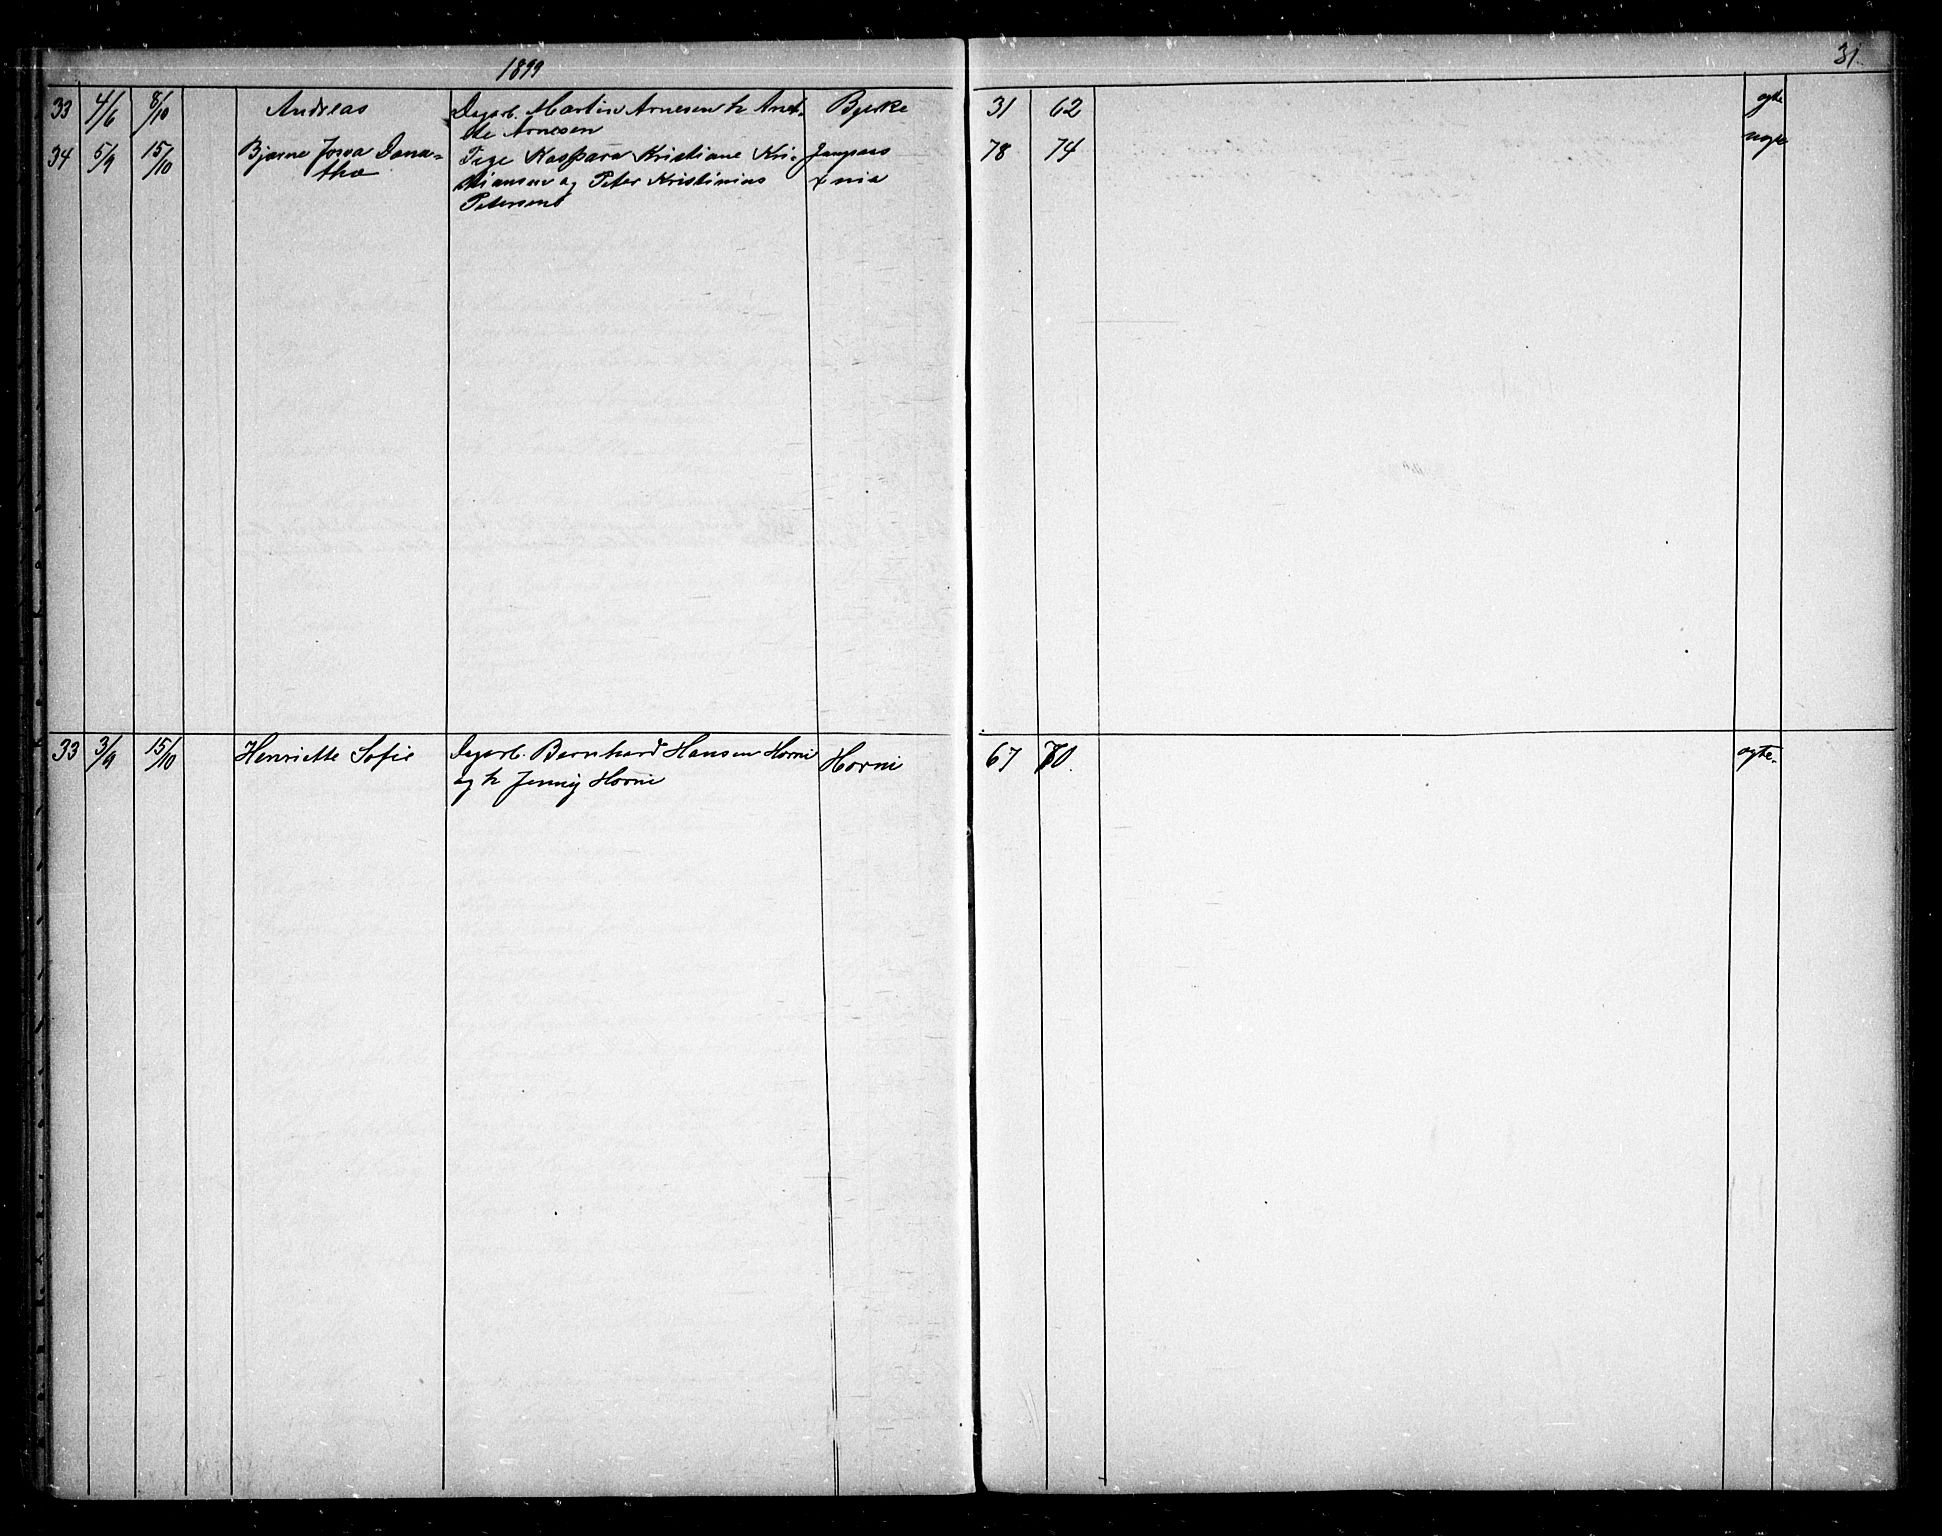 1899
31.
33 4/6 8/10 Andreas Dagarb. Martin Arnesen h. Anet- Bjerke 31 62 ægte
te Arnesen
34 5/9 15/10 Bjarne Josva Dana- Pige Kaspara Kristiane Kri- 78 74 uægte
tho stiansen og Peter Kristinius
Petersen
33 3/9 15/10 Henriette Sofie Dagarb. Bernhard Hansen Horni Horni 67 70. ægte.
og h. Jenny Horni